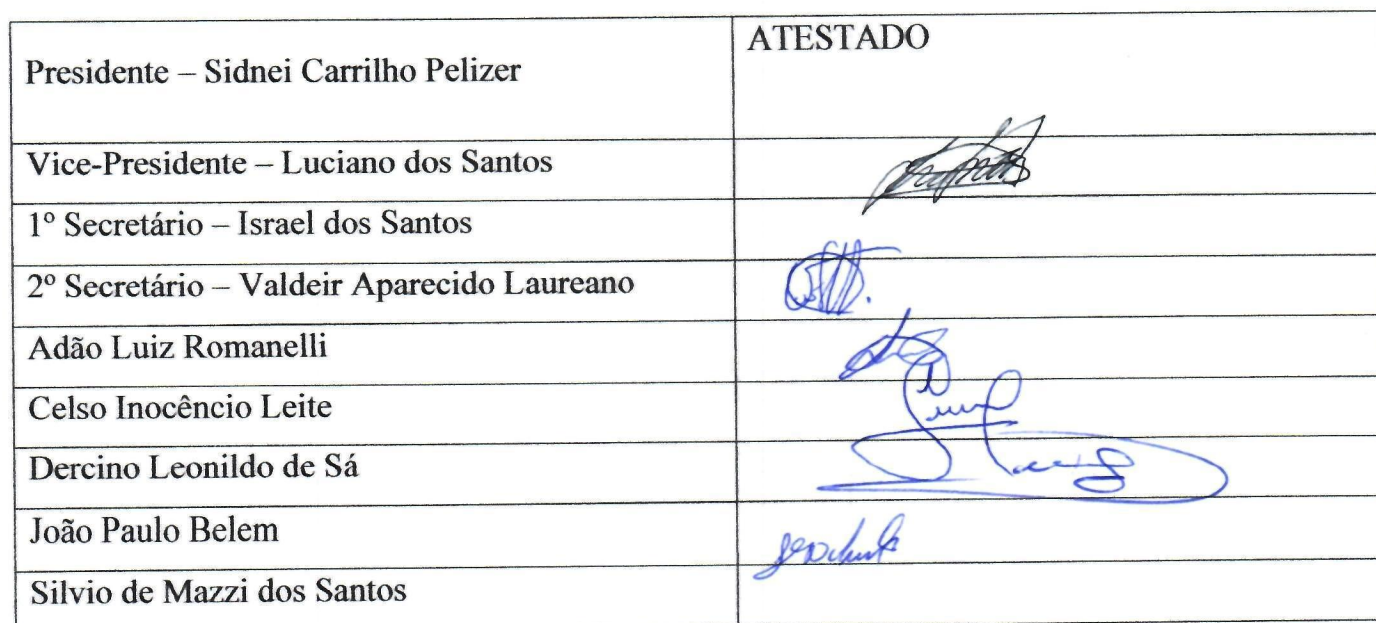 Presidente – Sidnei Carrilho Pelizer
ATESTADO
Vice-Presidente – Luciano dos Santos
1º Secretário – Israel dos Santos
2º Secretário – Valdeir Aparecido Laureano
Adão Luiz Romanelli
Celso Inocêncio Leite
Dercino Leonildo de Sá
João Paulo Belem
Silvio de Mazzi dos Santos